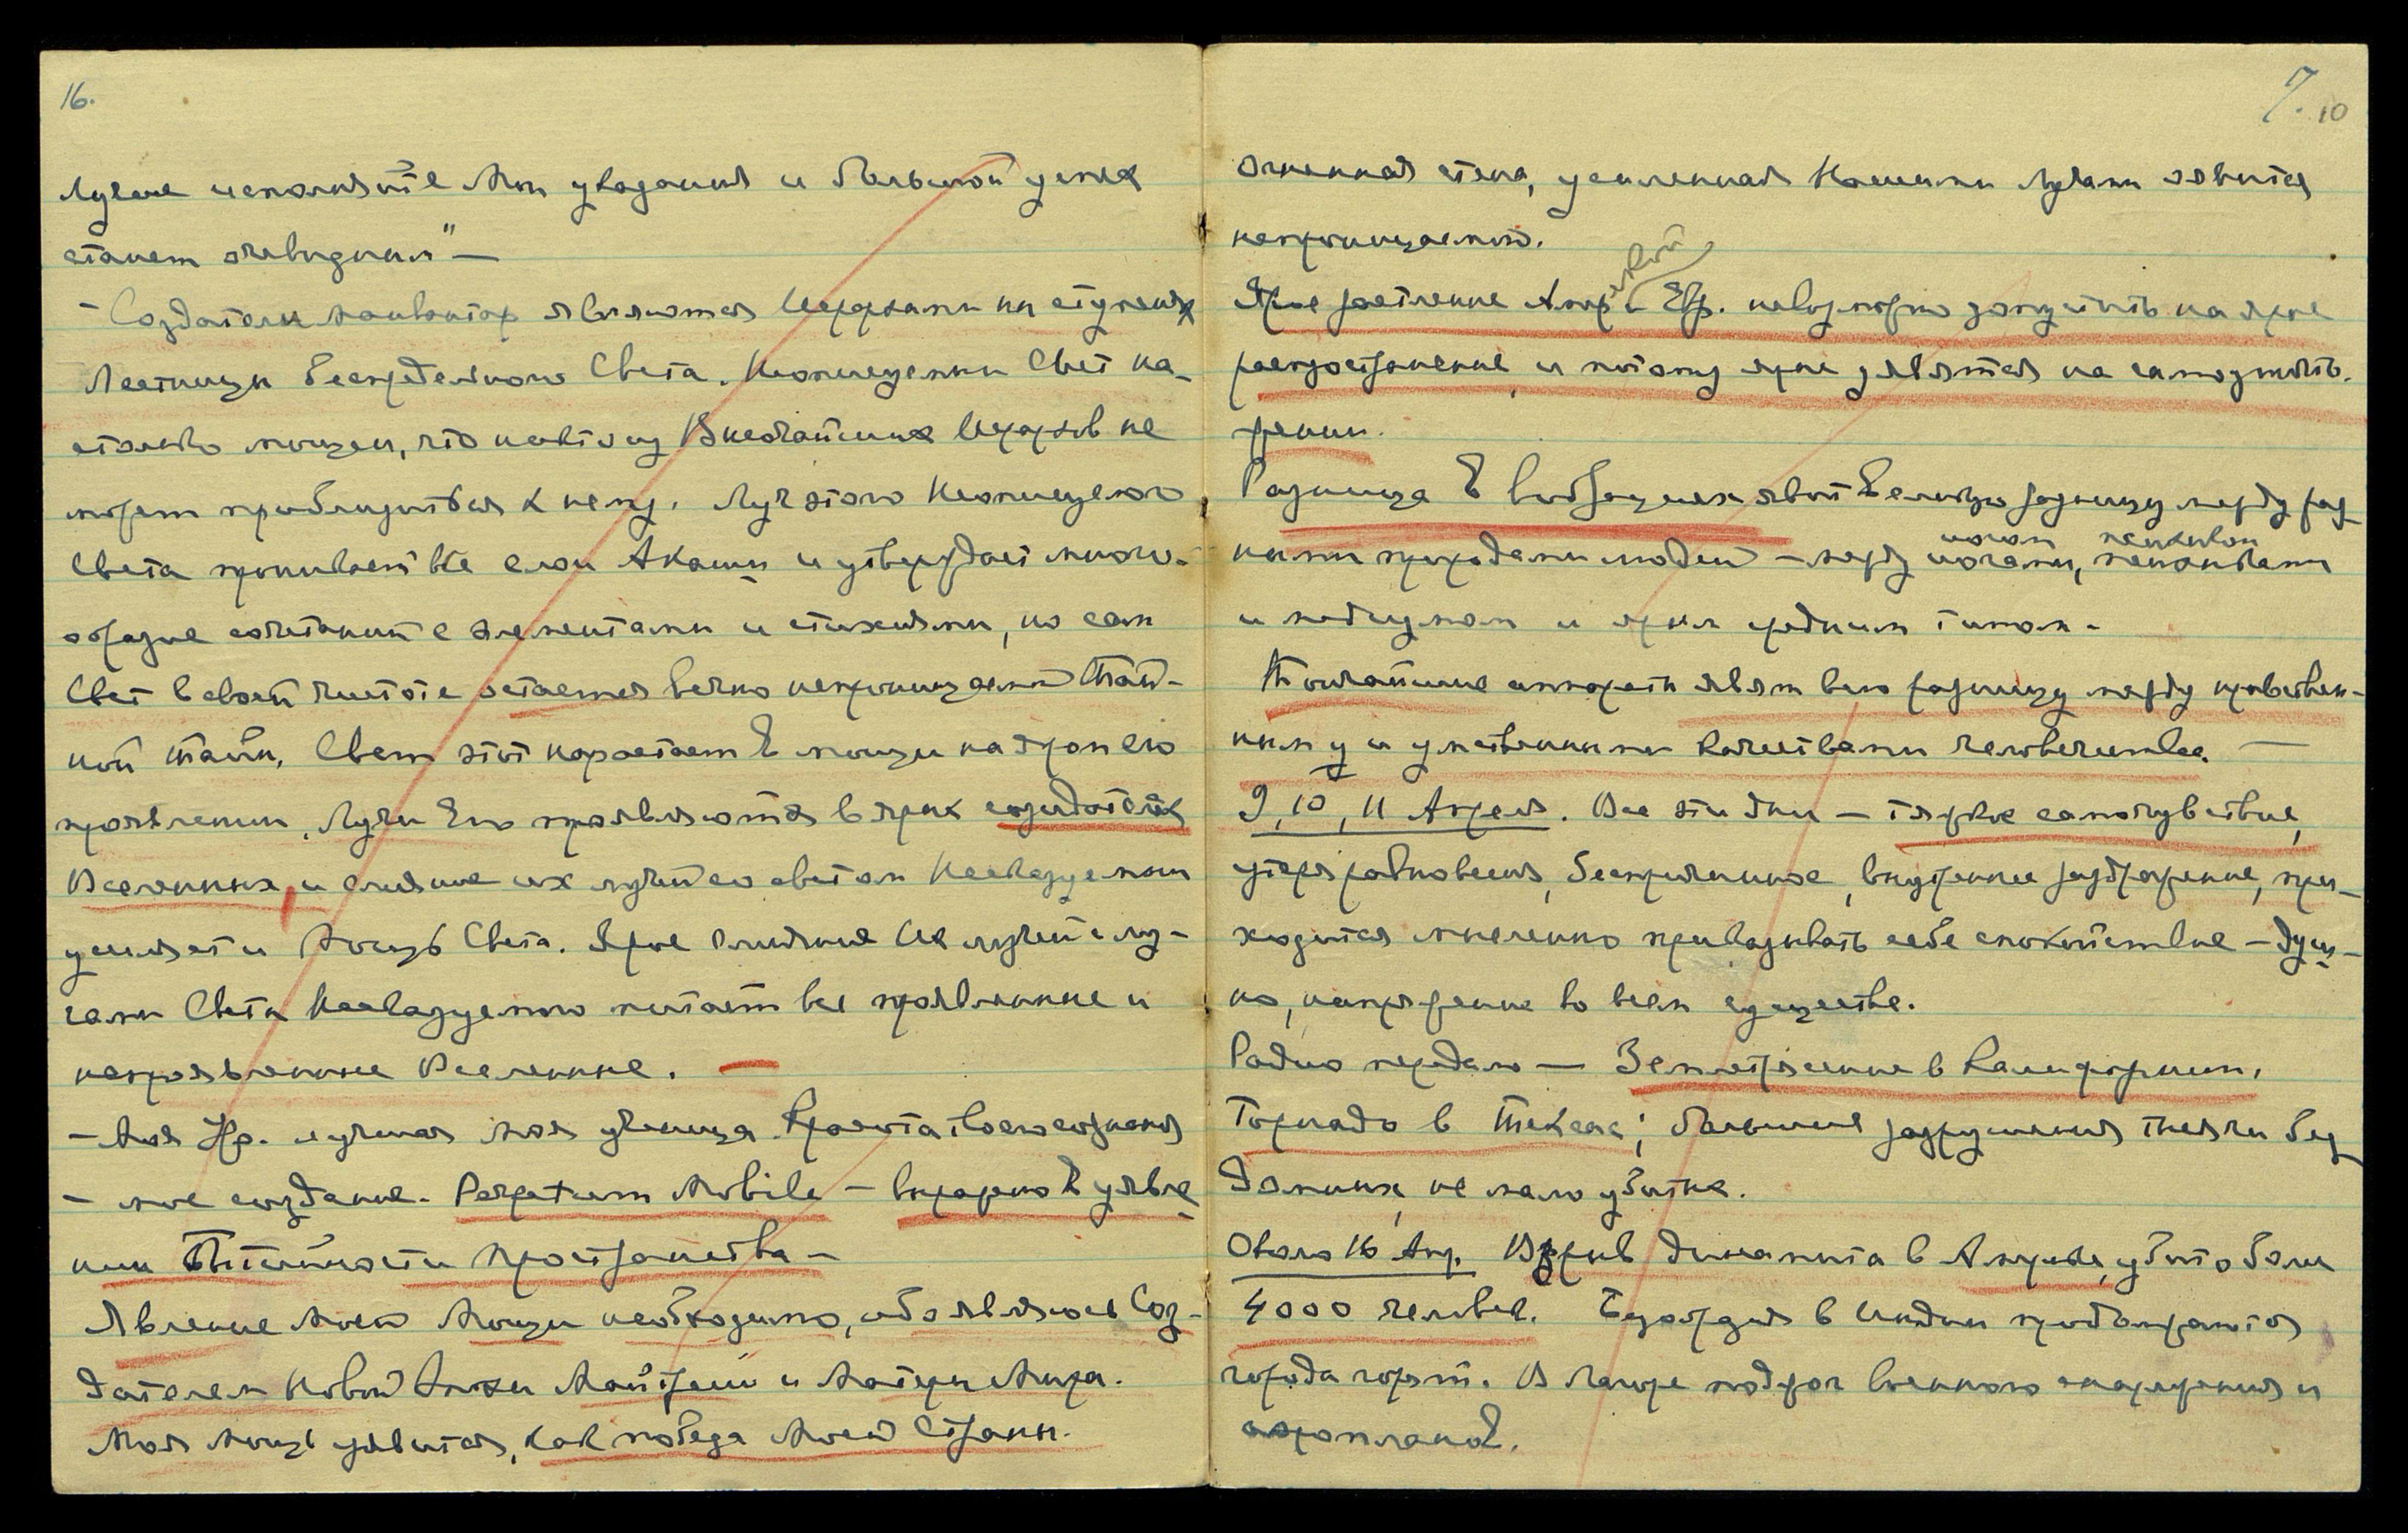 16.
лучше исполняйте Мои указания и большой успех
станет очевидным" —
- Создатели манвантар являются Иерархами на ступенях
Лестницы беспредельного Света. Неописуемый Свет на-
столько мощен, что никто из Высочайших Иерархов не
может приблизиться к нему. Луч этого Неописуемого
Света пронизывает все слои Акаши и утверждает много-
образие сочетаний с элементами и стихиями, но сам
Свет в своей чистоте остается вечно непроницаемой Тай-
ной Тайн. Свет этот нарастает в мощи на каждом его
проявлении. Лучи Его проявляются в ярых создателях
Вселенных, и слияние их лучей со светом Несказуемым
усиляет и Мощь Света. Ярое слияние Их лучей с лу-
чами Света Несказуемого питает все проявленные и
непроявленные Вселенные. —
- Моя Ур. лучшая моя ученица. Красота твоего сознания
- мое создание. Perpetuum Mobile - в уявле
нии Пространства -
Явление Моей Мощи необходимо, ибо являюсь Соз-
дателем Новой Эпохи Майтрейи и Матери Мира.
Моя Мощь уявится, как победа Моей Страны.
7. 10
Огненная стена, усиленная Нашими Лучами явится
непроницаемой.
Ярое растление Амер и Евр. невозможно допустить на ярое
распространение, и потому ярые уявятся на самоуничто-
жении.
Разница в явит великую разницу между раз
ными природами людей — между йогами,
и медиумом и ярым средним типом.
Тончайшие аппараты явят всю разницу между нравствен-
ными и умственными качествами человечества. —
9, 10, 11 Апреля. Все эти дни — тяжкое самочувствие,
утеря равновесия, беспричинное, внутреннее раздражение, при-
ходится мысленно приказывать себе спокойствие — душ-
но, напряжение во всем существе.
Радио передало — Землетрясение в Калифорнии.
Торнадо в Техасе; большие разрушения тысячи без
домных, не мало убитых.
Около 16 Апр. Взрыв динамита в Америке, убито более
4000 человек. Беспорядки в Индии продолжаются
города горят. В Лагоре подвоз военного снаряжения и
аэропланов.